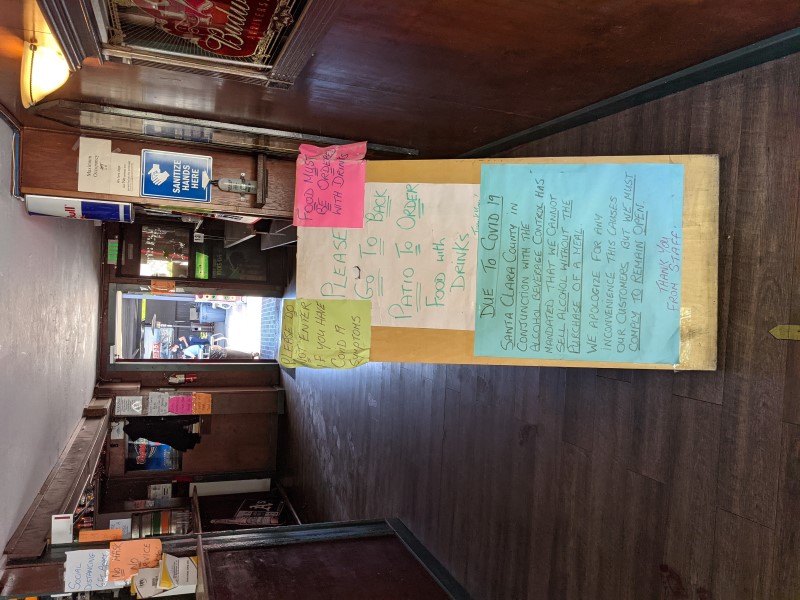 SOCIAL
DISTANCING
NO MASK
NO
SERVICE
Bull
Maximum
Occupancy
SANITIZE
HANDS
HERE
Budw
A's
PLEASE DO
NOT ENTER
IF YOU HAVE
COVID 19
SYMPTOMS
FOOD MUST
BE ORDER
WITH DRINK
PLEASE
GO TO BACK
PATIO TO ORDER
FOOD with
DRINKS
DUE TO COVID 19
SANTA CLARA COUNTY IN
CONJUNCTION WITH THE
ALCOHOL BEVERAGE CONTROL HAS
MANDATED THAT WE CANNOT
SELL ALCOHOL WITHOUT THE
PURCHASE OF A MEAL
WE APOLOGIZE FOR ANY
INCONVENIENCE THIS CAUSES
OUR CUSTOMERS BUT WE MUST
COMPLY TO REMAIN OPEN.
THANK YOU
FROM STAFF.